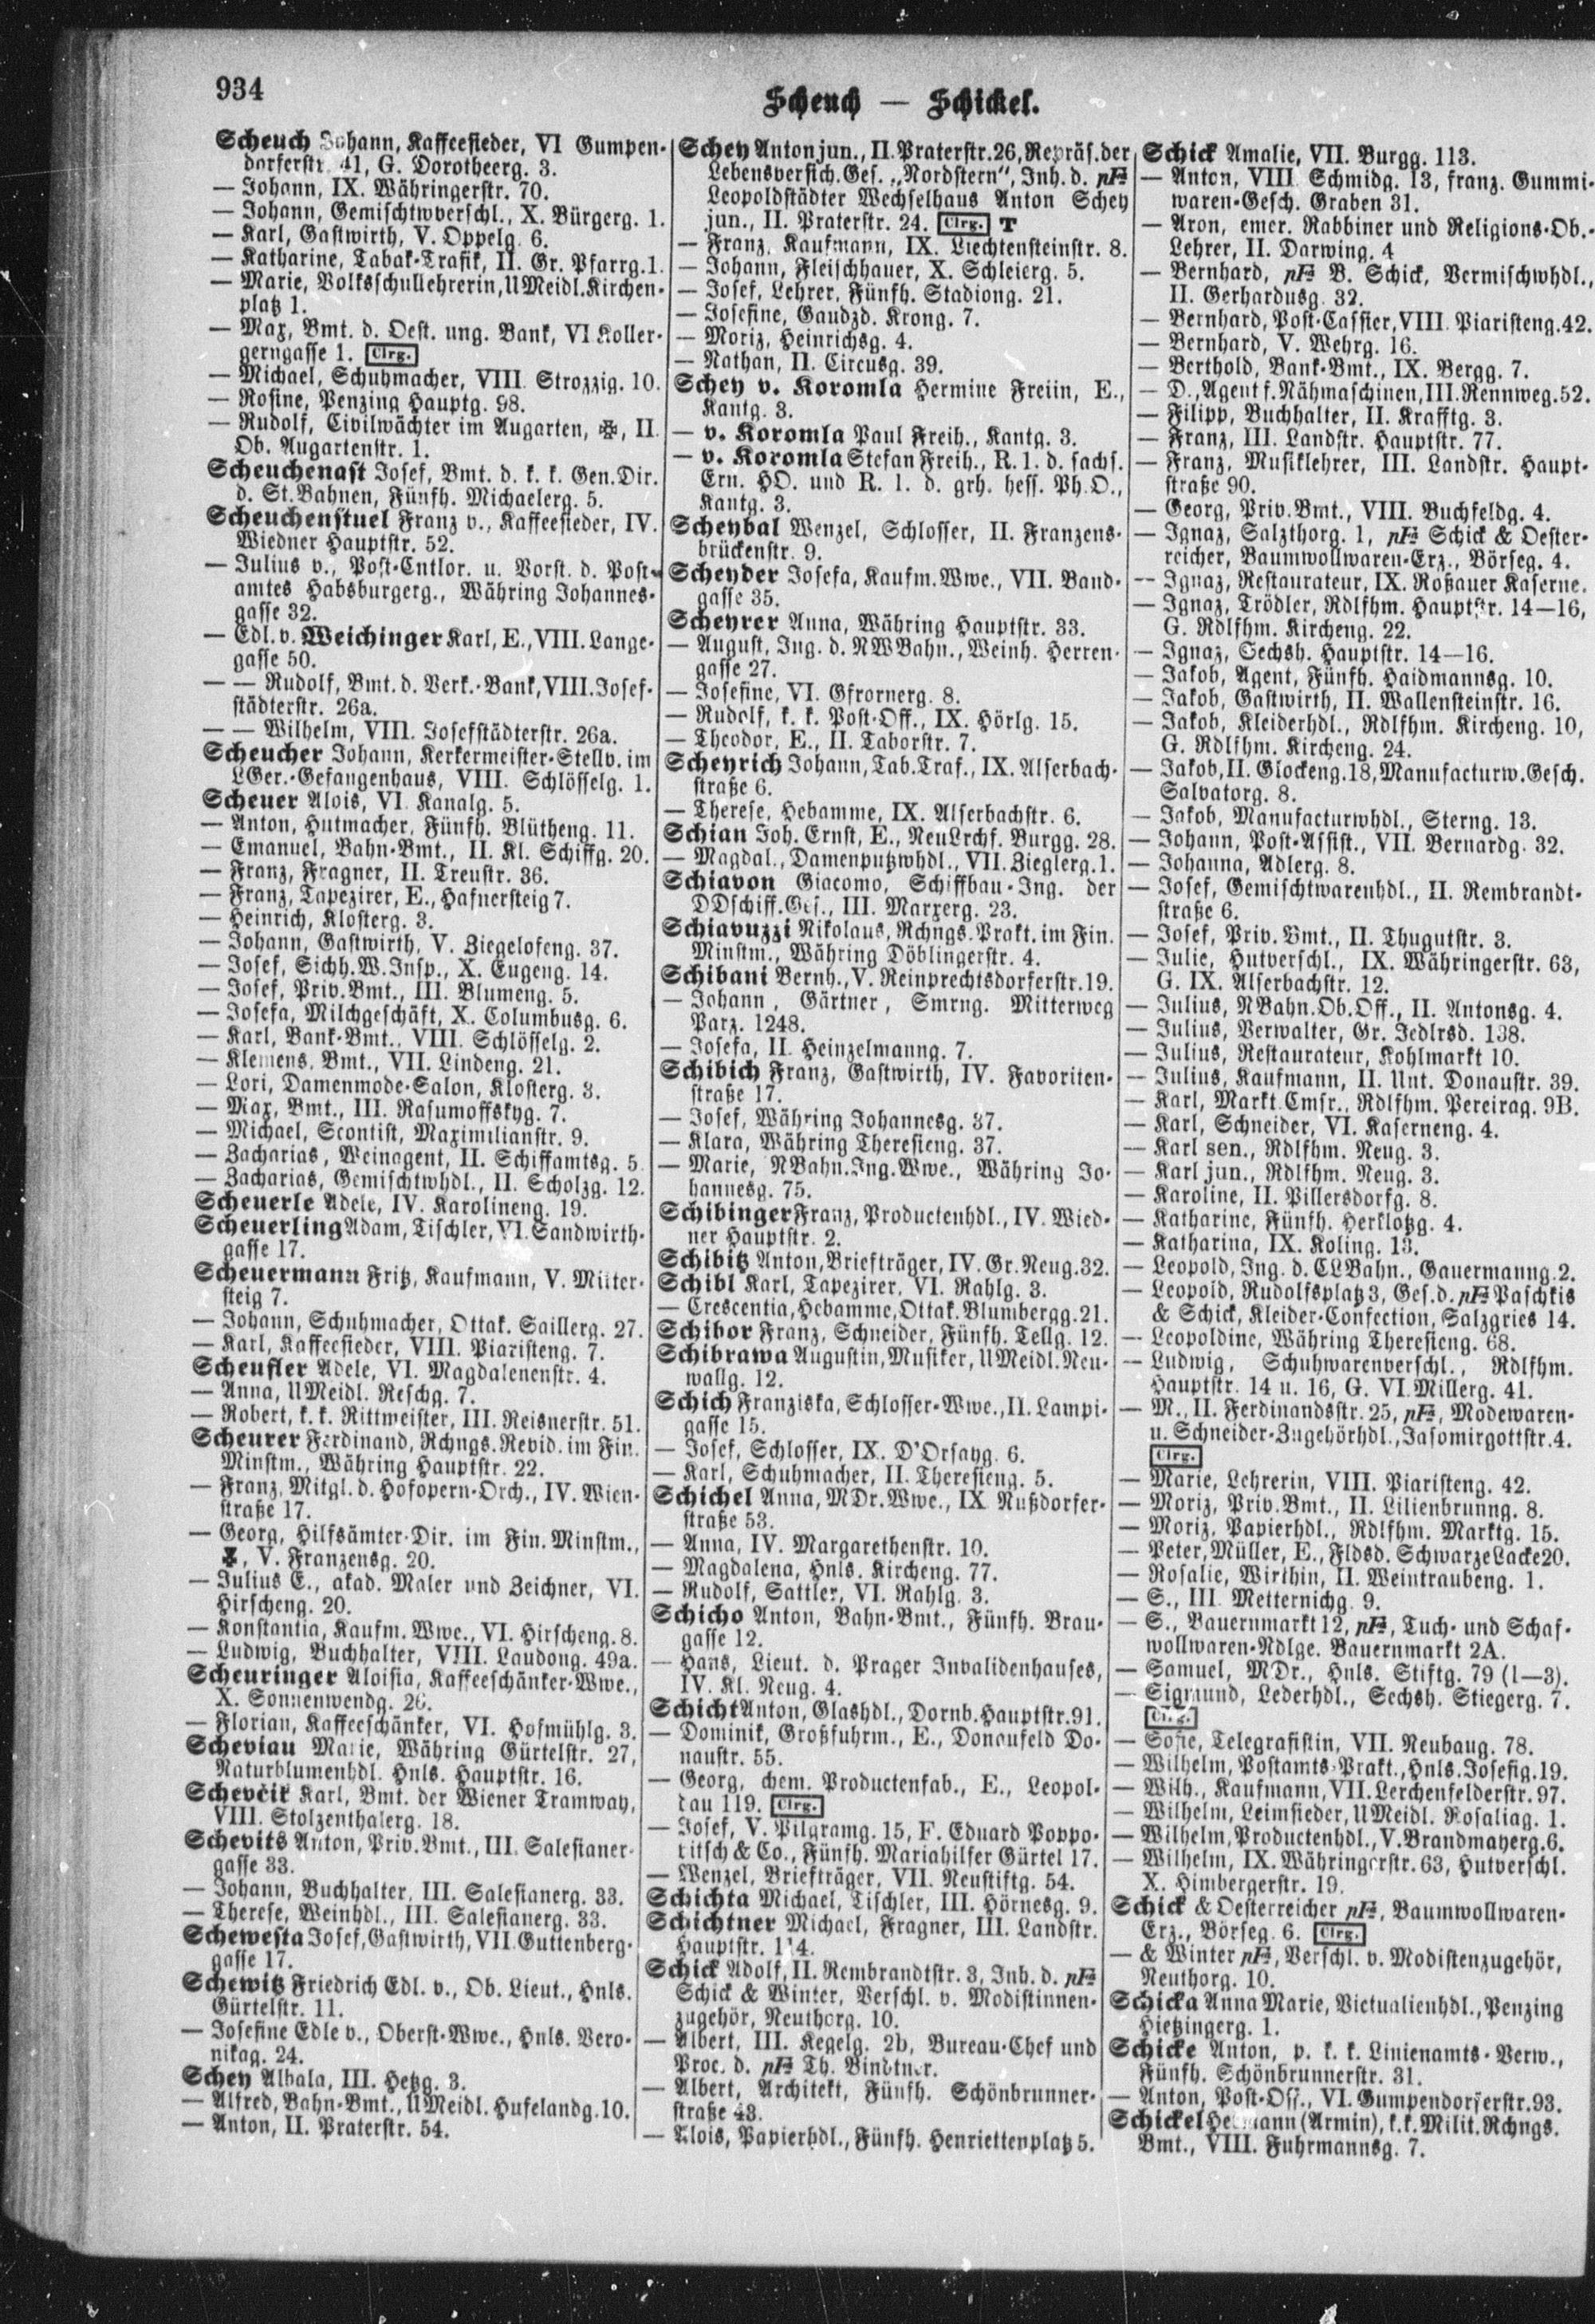 934
Scheuch — Schickel.
Scheuch Johann, Kaffeesieder, VI Gumpen-
dorferstr. 41, G. Dorotheerg. 3.
— Johann, IX. Währingerstr. 70.
— Johann, Gemischtwverschl., X. Bürgerg. 1.
— Karl, Gastwirth, V. Oppelg. 6.
— Katharine, Tabak-Trafik, II. Gr. Pfarrg. 1.
— Marie, Volksschullehrerin, UMeidl. Kirchen-
platz 1.
— Max, Bmt. d. Oest. ung. Bank, VI Koller-
gerngasse 1. Clrg.
— Michael, Schuhmacher, VIII. Strozzig. 10.
— Rosine, Penzing Hauptg. 98.
— Rudolf, Civilwächter im Augarten, ✠, II.
Ob. Augartenstr. 1.
Scheuchenast Josef, Bmt. d. k. k. Gen. Dir.
d. St. Bahnen, Fünfh. Michaelerg. 5.
Scheuchenstuel Franz v., Kaffeesieder, IV.
Wiedner Hauptstr. 52.
— Julius v., Post-Cntlor. u. Vorst. d. Post-
amtes Habsburgerg., Währing Johannes-
gasse 32.
— Edl. v. Weichinger Karl, E., VIII. Lange-
gasse 50.
— — Rudolf, Bmt. d. Verk.-Bank, VIII. Josef-
städterstr. 26a.
— — Wilhelm, VIII. Josefstädterstr. 26a.
Scheucher Johann, Kerkermeister-Stellv. im
LGer.-Gefangenhaus, VIII. Schlösselg. 1.
Scheuer Alois, VI. Kanalg. 5.
— Anton, Hutmacher, Fünfh. Blütheng. 11.
— Emanuel, Bahn-Bmt., II. Kl. Schiffg. 20.
— Franz, Fragner, II. Treustr. 36.
— Franz, Tapezirer, E., Hafnersteig 7.
— Heinrich, Klosterg. 3.
— Johann, Gastwirth, V. Ziegelofeng. 37.
— Josef, Sichh. W. Insp., X. Eugeng. 14.
— Josef, Priv. Bmt., III. Blumeng. 5.
— Josefa, Milchgeschäft, X. Columbusg. 6.
— Karl, Bank-Bmt., VIII. Schlösselg. 2.
— Klemens, Bmt., VII. Lindeng. 21.
— Lori, Damenmode-Salon, Klosterg. 3.
— Max, Bmt., III. Rasumoffskyg. 7.
— Michael, Scontist, Maximilianstr. 9.
— Zacharias, Weinagent, II. Schiffamtsg. 5
— Zacharias, Gemischtwhdl., II. Scholzg. 12.
Scheuerle Adele, IV. Karolineng. 19.
Scheuerling Adam, Tischler, VI. Sandwirth-
gasse 17.
Scheuermann Fritz, Kaufmann, V. Mitter-
steig 7.
— Johann, Schuhmacher, Ottak. Saillerg. 27.
— Karl, Kaffeesieder, VIII. Piaristeng. 7.
Scheufler Adele, VI. Magdalenenstr. 4.
— Anna, UMeidl. Reschg. 7.
— Robert, k. k. Rittmeister, III. Reisnerstr. 51.
Scheurer Ferdinand, Rchngs. Revid. im Fin.
Minstm., Währing Hauptstr. 22.
— Franz, Mitgl. d. Hofopern-Orch., IV. Wien-
straße 17.
— Georg, Hilfsämter-Dir. im Fin. Minstm.,
V. Franzensg. 20.
— Julius E., akad. Maler und Zeichner, VI.
Hirscheng. 20.
— Konstantia, Kaufm. Wwe., VI. Hirscheng. 8.
— Ludwig, Buchhalter, VIII. Laudong. 49a.
Scheuringer Aloisia, Kaffeeschänker-Wwe.,
X. Sonnenwendg.
— Florian, Kaffeeschänker, VI. Hofmühlg. 3.
Scheviau Marie, Währing Gürtelstr. 27,
Naturblumenhdl. Hnls. Hauptstr. 16.
Schevčik Karl, Bmt. der Wiener Tramway,
VIII. Stolzenthalerg. 18.
Schevits Anton, Priv. Bmt., III. Salesianer-
gasse 33.
— Johann, Buchhalter, III. Salesianerg. 33.
— Therese, Weinhdl., III. Salesianerg. 33.
Schewesta Josef, Gastwirth, VII. Guttenberg-
gasse 17.
Schewitz Friedrich Edl. v., Ob. Lieut., Hnls.
Gürtelstr. 11.
— Josefine Edle v., Oberst-Wwe., Hnls. Vero-
nikag. 24.
Schey Albala, III. Hetzg. 3.
— Alfred, Bahn-Bmt., UMeidl. Hufelandg. 10.
— Anton, II. Praterstr. 54.
Schey Anton jun., II. Praterstr. 26, Repräs. der
Lebensversich. Ges. „Nordstern“, Inh. d. pF
Leopoldstädter Wechselhaus Anton Schey
jun., II. Praterstr. 24. Clrg. T
— Franz, Kaufmann, IX. Liechtensteinstr. 8.
— Johann, Fleischhauer, X. Schleierg. 5.
— Josef, Lehrer, Fünfh. Stadiong. 21.
— Josefine, Gaudzd. Krong. 7.
— Moriz, Heinrichsg. 4.
— Nathan, II. Circusg. 39.
Schey v. Koromla Hermine Freiin, E.,
Kantg. 3.
— v. Koromla Paul Freih., Kantg. 3.
— v. Koromla Stefan Freih., R. 1. d. sachs.
Ern. HO. und R. 1. d. grh. hess. Ph. O.,
Kantg. 3.
Scheybal Wenzel, Schlosser, II. Franzens-
brückenstr. 9.
Scheyder Josefa, Kaufm. Wwe., VII. Band-
gasse 35.
Scheyrer Anna, Währing Hauptstr. 33.
— August, Ing. d. NWBahn., Weinh. Herren-
gasse 27.
— Josefine, VI. Gfrornerg. 8.
— Rudolf, k. k. Post-Off., IX. Hörlg. 15.
— Theodor, E., II. Taborstr. 7.
Scheyrich Johann, Tab. Traf., IX. Alserbach-
straße 6.
— Therese, Hebamme, IX. Alserbachstr. 6.
Schian Joh. Ernst, E., NeuLrchf. Burgg. 28.
— Magdal., Damenputzwhdl., VII. Zieglerg. 1.
Schiavon Giacomo, Schiffbau-Ing. der
DDschiff. Ges., III. Marxerg. 23.
Schiavuzzi Nikolaus, Rchngs. Prakt. im Fin.
Minstm., Währing Döblingerstr. 4.
Schibani Bernh., V. Reinprechtsdorferstr. 19.
— Johann, Gärtner, Smrng. Mitterweg
Parz. 1248.
— Josefa, II. Heinzelmanng. 7.
Schibich Franz, Gastwirth, IV. Favoriten-
straße 17.
— Josef, Währing Johannesg. 37.
— Klara, Währing Theresieng. 37.
— Marie, NBahn. Ing. Wwe., Währing Jo-
hannesg. 75.
Schibinger Franz, Productenhdl., IV. Wied-
ner Hauptstr. 2.
Schibitz Anton, Briefträger, IV. Gr. Neug. 32.
Schibl Karl, Tapezirer, VI. Rahlg. 3.
— Crescentia, Hebamme, Ottak. Blumbergg. 21.
Schibor Franz, Schneider, Fünfh. Tellg. 12.
Schibrawa Augustin, Musiker, UMeidl. Neu-
wallg. 12.
Schich Franziska, Schlosser-Wwe., II. Lampi-
gasse 15.
— Josef, Schlosser, IX. D'Orsayg. 6.
— Karl, Schuhmacher, II. Theresieng. 5.
Schichel Anna, MDr. Wwe., IX Nußdorfer-
straße 53.
— Anna, IV. Margarethenstr. 10.
— Magdalena, Hnls. Kircheng. 77.
— Rudolf, Sattler, VI. Rahlg. 3.
Schicho Anton, Bahn-Bmt., Fünfh. Brau-
gasse 12.
— Hans, Lieut. d. Prager Invalidenhauses,
IV. Kl. Neug. 4.
Schicht Anton, Glashdl., Dornb. Hauptstr. 91.
— Dominik, Großfuhrm., E., Donaufeld Do-
naustr. 55.
— Georg, chem. Productenfab., E., Leopol-
dau 119. Clrg.
— Josef, V. Pilgramg. 15, F. Eduard Poppo-
vitsch & Co., Fünfh. Mariahilfer Gürtel 17.
— Wenzel, Briefträger, VII. Neustiftg. 54.
Schichta Michael, Tischler, III. Hörnesg. 9.
Schichtner Michael, Fragner, III. Landstr.
Hauptstr. 114.
Schick Adolf, II. Rembrandtstr. 3, Inh. d. pF
Schick & Winter, Verschl. v. Modistinnen-
zugehör, Neuthorg. 10.
— Albert, III. Kegelg. 2b, Bureau-Chef und
Proc. d. pF Th. Bindtner.
— Albert, Architekt, Fünfh. Schönbrunner-
straße 43.
— Alois, Papierhdl., Fünfh. Henriettenplatz 5.
Schick Amalie, VII. Burgg. 113.
— Anton, VIII. Schmidg. 13, franz. Gummi-
waren-Gesch. Graben 31.
— Aron, emer. Rabbiner und Religions-Ob.-
Lehrer, II. Darwing. 4
— Bernhard, pF B. Schick, Vermischwhdl.,
II. Gerhardusg. 32.
— Bernhard, Post-Cassier, VIII. Piaristeng. 42.
— Bernhard, V. Wehrg. 16.
— Berthold, Bank-Bmt., IX. Bergg. 7.
— D., Agent f. Nähmaschinen, III. Rennweg. 52.
— Filipp, Buchhalter, II. Krafftg. 3.
— Franz, III. Landstr. Hauptstr. 77.
— Franz, Musiklehrer, III. Landstr. Haupt-
straße 90.
— Georg, Priv. Bmt., VIII. Buchfeldg. 4.
— Ignaz, Salzthorg. 1, pF Schick & Oester-
reicher, Baumwollwaren-Erz., Börseg. 4.
— Ignaz, Restaurateur, IX. Roßauer Kaserne.
— Ignaz, Trödler, Rdlfhm. Hauptstr. 14—16,
G. Rdlfhm. Kircheng. 22.
— Ignaz, Sechsh. Hauptstr. 14—16.
— Jakob, Agent, Fünfh. Haidmannsg. 10.
— Jakob, Gastwirth, II. Wallensteinstr. 16.
— Jakob, Kleiderhdl., Rdlfhm. Kircheng. 10,
G. Rdlfhm. Kircheng. 24.
— Jakob, II. Glockeng. 18, Manufacturw. Gesch.
Salvatorg. 8.
— Jakob, Manufacturwhdl., Sterng. 13.
— Johann, Post-Assist., VII. Bernardg. 32.
— Johanna, Adlerg. 8.
— Josef, Gemischtwarenhdl., II. Rembrandt-
straße 6.
— Josef, Priv. Bmt., II. Thugutstr. 3.
— Julie, Hutverschl., IX. Währingerstr. 63,
G. IX. Alserbachstr. 12.
— Julius, NBahn. Ob. Off., II. Antonsg. 4.
— Julius, Verwalter, Gr. Jedlrsd. 138.
— Julius, Restaurateur, Kohlmarkt 10.
— Julius, Kaufmann, II. Unt. Donaustr. 39.
— Karl, Markt. Cmsr., Rdlfhm. Pereirag. 9B.
— Karl, Schneider, VI. Kaserneng. 4.
— Karl sen., Rdlfhm. Neug. 3.
— Karl jun., Rdlfhm. Neug. 3.
— Karoline, II. Pillersdorfg. 8.
— Katharine, Fünfh. Herklotzg. 4.
— Katharina, IX. Koling. 13.
— Leopold, Ing. d. CLBahn., Gauermanng. 2.
— Leopold, Rudolfsplatz 3, Ges. d. pF Paschkis
& Schick, Kleider-Confection, Salzgries 14.
— Leopoldine, Währing Theresieng. 68.
— Ludwig, Schuhwarenverschl., Rdlfhm.
Hauptstr. 14 u. 16, G. VI. Millerg. 41.
— M., II. Ferdinandsstr. 25, pF, Modewaren-
u. Schneider-Zugehörhdl., Jasomirgottstr. 4.
Clrg.
— Marie, Lehrerin, VIII. Piaristeng. 42.
— Moriz, Priv. Bmt., II. Lilienbrunng. 8.
— Moriz, Papierhdl., Rdlfhm. Marktg. 15.
— Peter, Müller, E., Fldsd. Schwarze Lacke 20.
— Rosalie, Wirthin, II. Weintraubeng. 1.
— S., III. Metternichg. 9.
— S., Bauernmarkt 12, pF, Tuch- und Schaf-
wollwaren-Ndlge. Bauernmarkt 2A.
— Samuel, MDr., Hnls. Stiftg. 79 (1—3).
— Sigmund, Lederhdl., Sechsh. Stiegerg. 7.
Clrg.
— Sofie, Telegrafistin, VII. Neubaug. 78.
— Wilhelm, Postamts-Prakt., Hnls. Josefig. 19.
— Wilh., Kaufmann, VII. Lerchenfelderstr. 97.
— Wilhelm, Leimsieder, UMeidl. Rosaliag. 1.
— Wilhelm, Productenhdl., V. Brandmayerg. 6.
— Wilhelm, IX. Währingerstr. 63, Hutverschl.
X. Himbergerstr. 19.
Schick & Oesterreicher pF, Baumwollwaren-
Erz., Börseg. 6. Clrg.
— & Winter pF, Verschl. v. Modistenzugehör,
Neuthorg. 10.
Schicka Anna Marie, Victualienhdl., Penzing
Hietzingerg. 1.
Schicke Anton, p. k. k. Linienamts-Verw.,
Fünfh. Schönbrunnerstr. 31.
— Anton, Post-Off., VI. Gumpendorferstr. 93.
Schickel Hermann (Armin), k. k. Milit. Rchngs.
Bmt., VIII. Fuhrmannsg. 7.